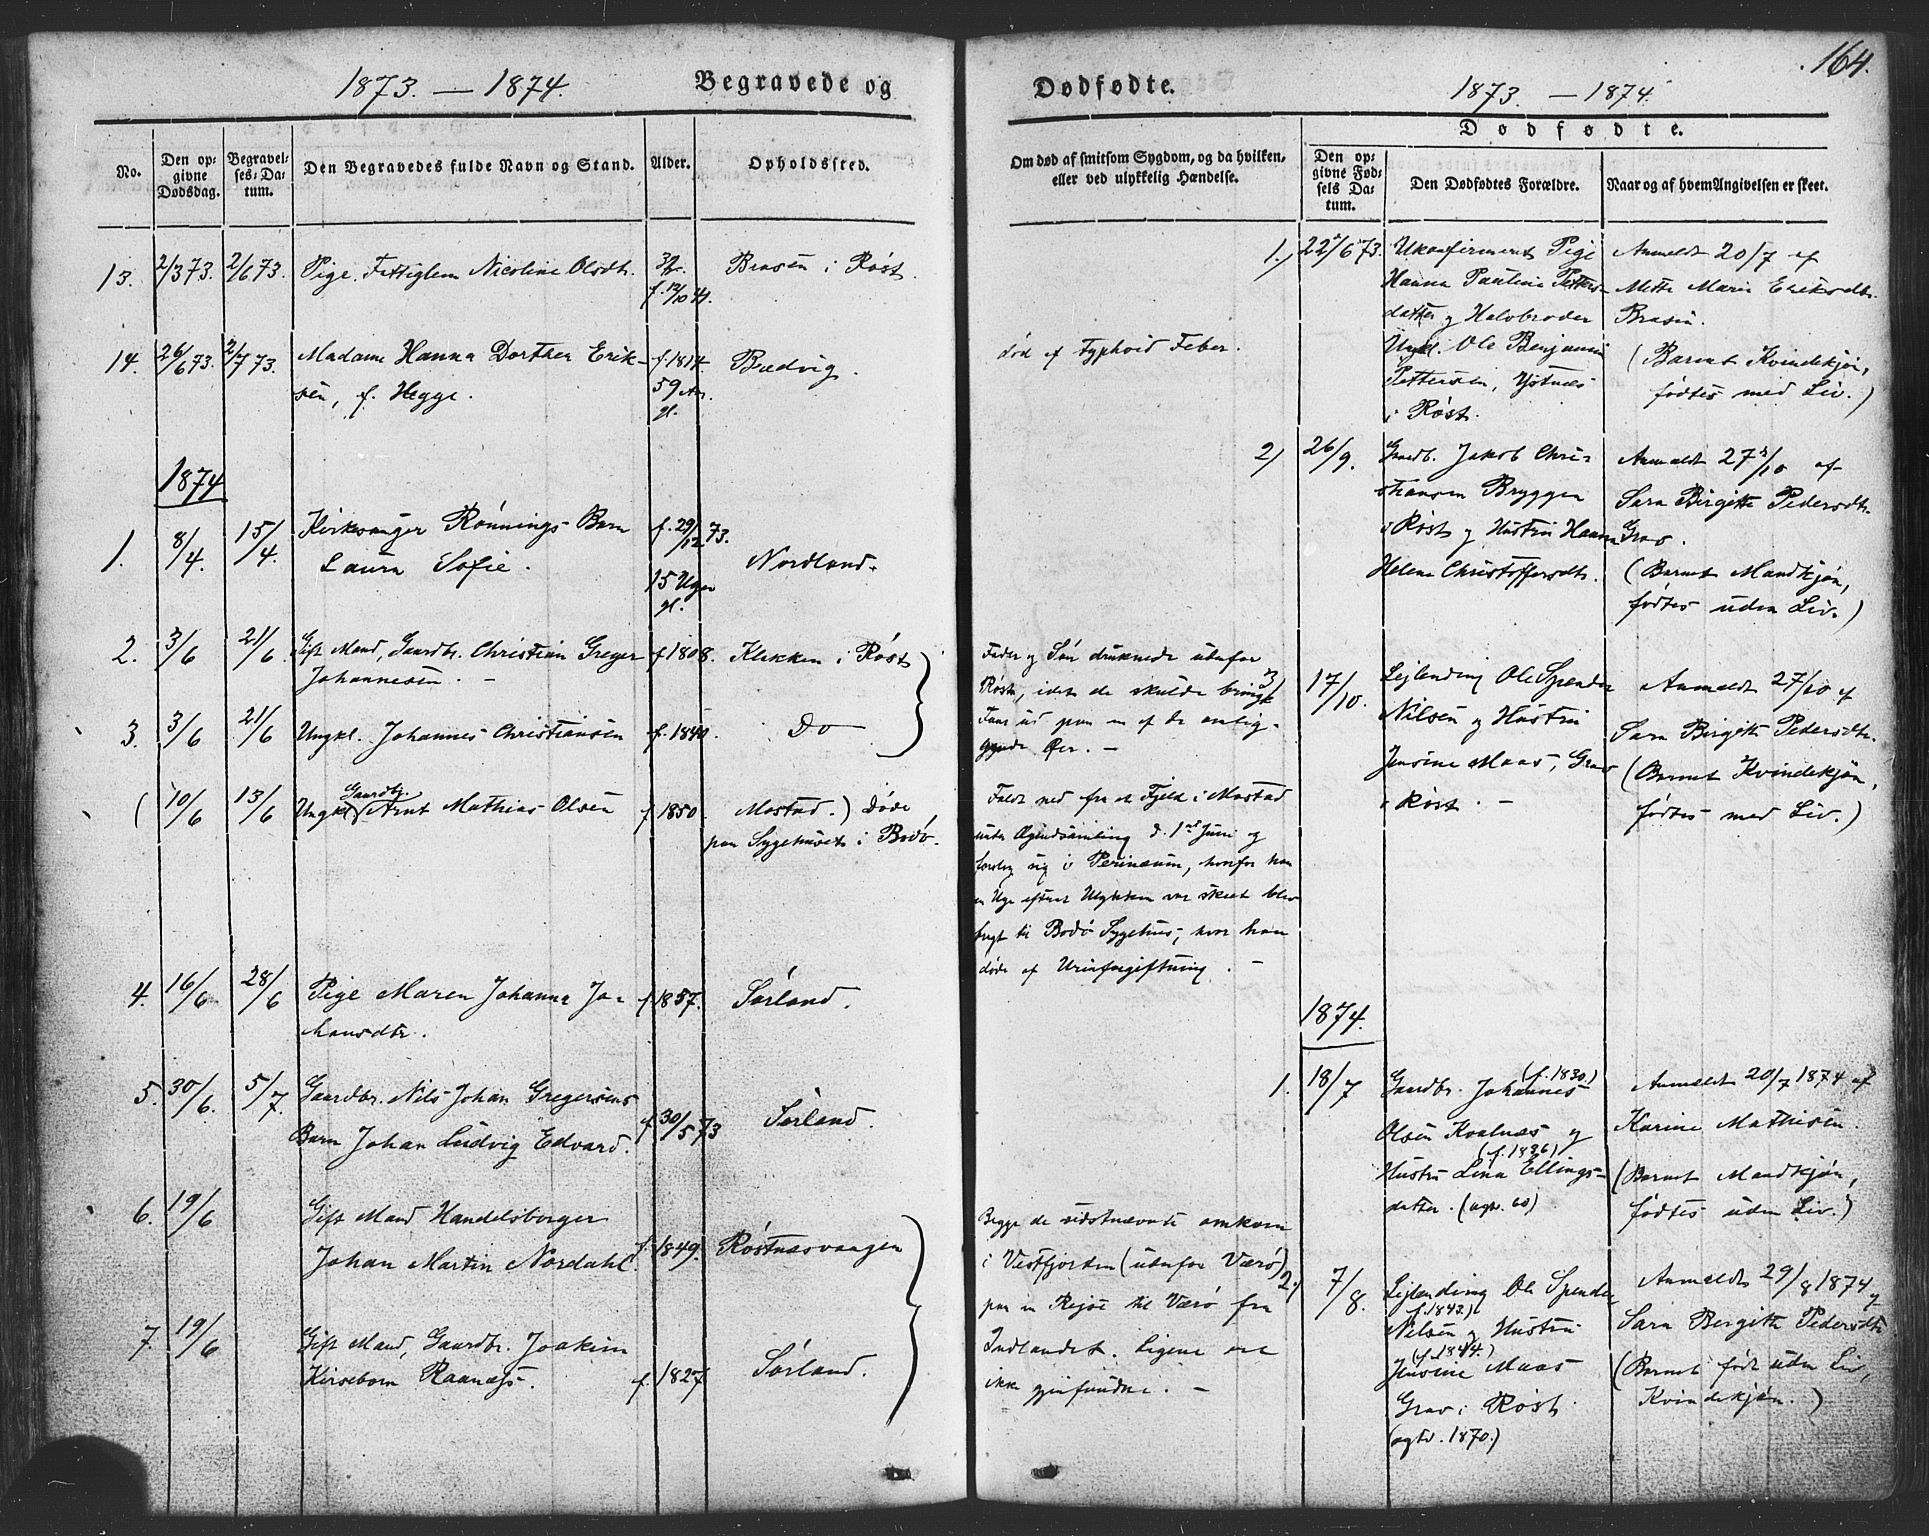 164.
1873. — 1874. Begravede og
No.
Den opgivne Dødsdag.
Begravelses-Datum.
Den Begravedes fulde Navn og Stand.
Alder.
Opholdssted.
13. 2/3 73. 2/6 73. Pige, Fattiglem Nicoline Olsdt. Brasen i Røst.
f. 12/10 41
14. 26/6 73. 2/7 73. Madame Hanna Dorthea Erik- f. 1814. Bredvig.
sen, f. Hegge. 59 Aar
gl.
1874
1. 8/4. 15/4. Kirkesanger Rønnings Barn f. 29/12 73. Nordland.
Laura Sofie. 15 Uger
gl.
2. 3/6 21/6 Gift Mand, Gaardbr. Christian Greger f. 1808. Klakken i Røst
Johannesen. —
3. 3/6 21/6 Ungkl. Johannes Christiansen f. 1840. Do —
( 10/6 13/6 Ungkl. Gaardbr. Arnt Mathias Olsen f. 1850. Mostad.) Døde
paa Sygehuset i Bodø.
4. 16/6 28/6 Pige Maren Johanna Jo- f. 1857. Sørland.
hansdtr.
5. 30/6. 5/7. Gaardbr. Nils Johan Gregersens f. 30/5 73 Sørland.
Barn Johan Ludvig Edvard.
6. 19/6 Gift Mand Handelsborger
Johan Martin Nordahl. f. 1849. Røstnesvaagen
7. 19/6 Gift Mand, Gaardbr. Joakim
Kirsebom Raanæs. f. 1827. Sørland.
Dødfødte. 1873. — 1874.
Dødfødte.
Om død af smitsom Sygdom, og da hvilken, eller ved ulykkelig Hændelse.
Den opgivne Fødsels Datum.
Den Dødfødtes Forældre.
Naar og af hvem Angivelsen er skeet.
død af Typhoid Feber.
Fader og Søn druknede udenfor
Røst, idet de skulde bringe
Faar ud paa en af de omlig-
gende Øer. —
Faldt ned fra et Fjeld i Mostad
under Ægindsamling d. 1ste Juni og
forslog sig i Perinæum, hvorfor han
en Uge efterat Ulykken var skeet blev
bragt til Bodø Sygehus, hvor han
døde af Urinforgiftning. —
Begge de sidstnævnte omkom
i Vestfjorden (udenfor Værø)
paa en Rejse til Værø fra
Indlandet. Ligene ere
ikke gjenfundne. —
1.) 22/6 73. Ukonfirmeret Pige Anmeldt 20/7 af
Hanna Pauline Petters- Mette Marie Eriksdtr.
datter og Halvbroder Brasen.
Ungkl. Ole Benjamin (Barnet Kvindekjøn,
Pettersen, Ystnes fødtes med Liv.)
i Røst.
2) 26/9. Gaardb. Jakob Chri- Anmeldt 27/10 af
stiansen Bryggen Sara Birgitte Pedersdtr.
i Røst og Hustru Hanna Grav.
Helene Christoffersdtr. (Barnet Mandkjøn,
fødtes uden Liv.)
3) 17/10. Lejlending Ole Spender Anmeldt 27/10 af
Nilsen og Hustru Sara Birgitte Pedersdtr.
Jensine Maas, Grav (Barnet Kvindekjøn,
i Røst. — fødtes med Liv.)
1874.
1. 18/7 Gaardbr. Johannes (f. 1830.) Anmeldt 20/7 1874 af
Olsen Kvalnæs og Karine Mathisen.
(f. 1836)
Hustru Lena Ellings- (Barnet Mandkjøn,
datter. (agtv. 60) fødtes uden Liv.)
2.) 7/8. Lejlending Ole Spender Anmeldt 29/8 1874 af
(f. 1843.)
Nilsen og Hustru Sara Birgitte Pedersdtr.
(f. 1844.)
Jensine Maas (Barnet født uden Liv,
Grav i Røst. Kvindekjøn.)
(agtv. 1870.)